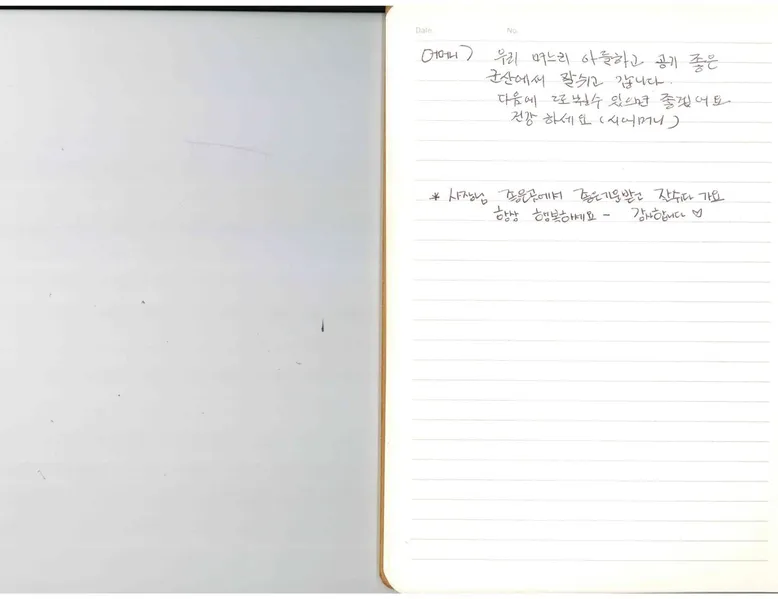 Date. No.
(어머니) 우리 며느리 아들하고 공기 좋은
군산에서 잘쉬고 갑니다.
다음에 또 뵐수 있으면 좋겠어요
건강 하세요 (시어머니)
* 사장님 좋은곳에서 좋은기운받고 잘쉬다 가요
항상 행복하세요 - 감사합니다 ♡